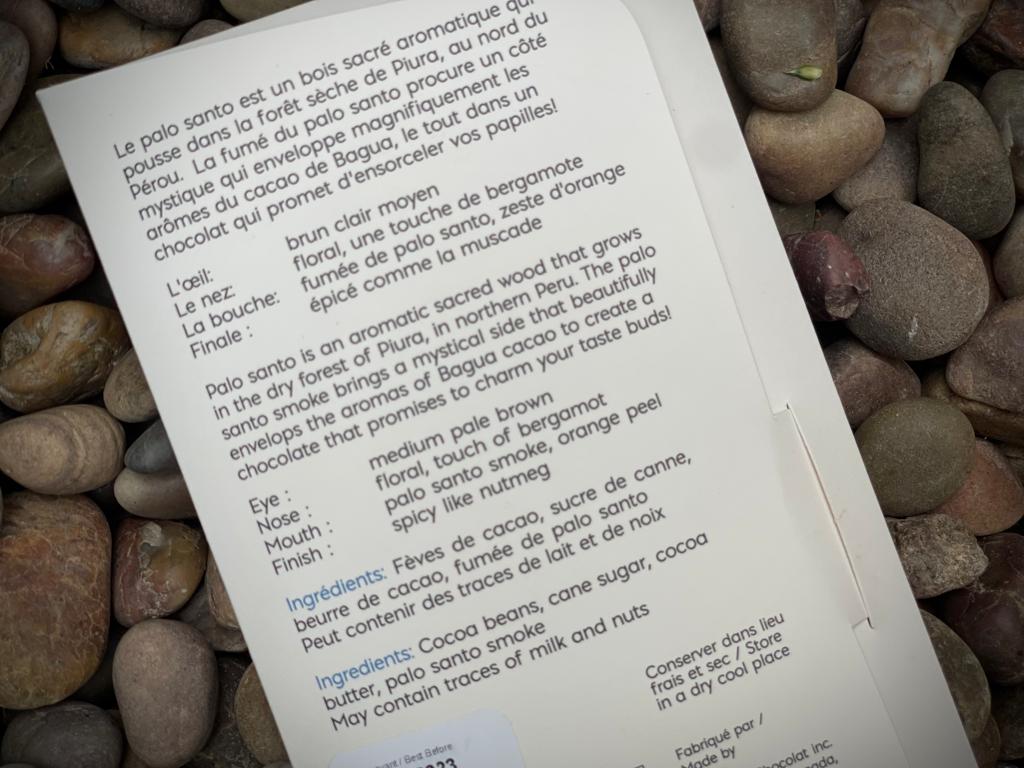 Le palo santo est un bois sacré aromatique qui
pousse dans la forêt sèche de Piura, au nord du
Pérou. La fumé du palo santo procure un côté
mystique qui enveloppe magnifiquement les
arômes du cacao de Bagua, le tout dans un
chocolat qui promet d'ensorceler vos papilles!
L'œil: brun clair moyen
Le nez: floral, une touche de bergamote
La bouche: fumée de palo santo, zeste d'orange
Finale : épicé comme la muscade
Palo santo is an aromatic sacred wood that grows
in the dry forest of Piura, in northern Peru. The palo
santo smoke brings a mystical side that beautifully
envelops the aromas of Bagua cacao to create a
chocolate that promises to charm your taste buds!
Eye : medium pale brown
Nose : floral, touch of bergamot
Mouth : palo santo smoke, orange peel
Finish : spicy like nutmeg
Ingrédients: Fèves de cacao, sucre de canne,
beurre de cacao, fumée de palo santo
Peut contenir des traces de lait et de noix
Ingredients: Cocoa beans, cane sugar, cocoa
butter, palo santo smoke
May contain traces of milk and nuts
Conserver dans lieu
frais et sec / Store
in a dry cool place
/ Best Before
Fabriqué par /
Made by
Chocolat inc.